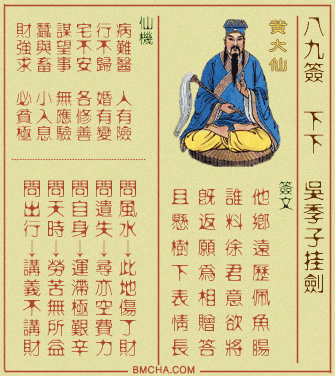 八九簽 下下 吳季子挂劍
黄大仙
簽文
他鄉遠歷佩魚腸
誰料徐君意欲將
旣返願爲相贈答
且懸樹下表情長
仙機
病難醫 人有險
行不歸 婚有變
宅不安 各修善
謀望事 無應驗
蠶與畜 小入息
財強求 必貧極
問風水→此地傷了財
問遺失→尋亦空費力
問自身→運滯極艱辛
問天時→勞苦無所益
問出行→講義不講財
BMCHA.COM